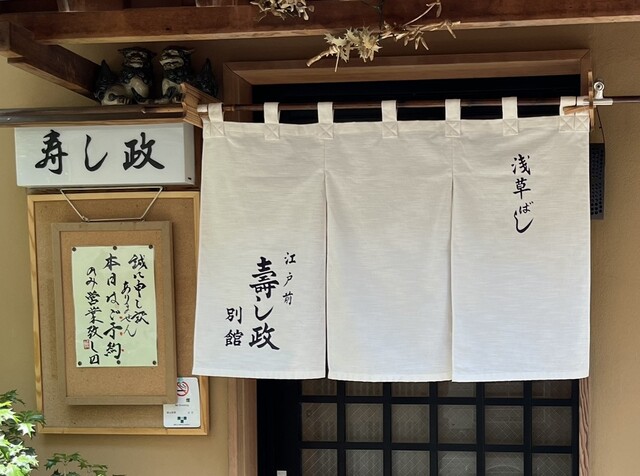 寿し政
誠に申し訳
ありません
本日はご予約
のみ営業致し〼
浅草ばし
江戸前
壽し政
別館